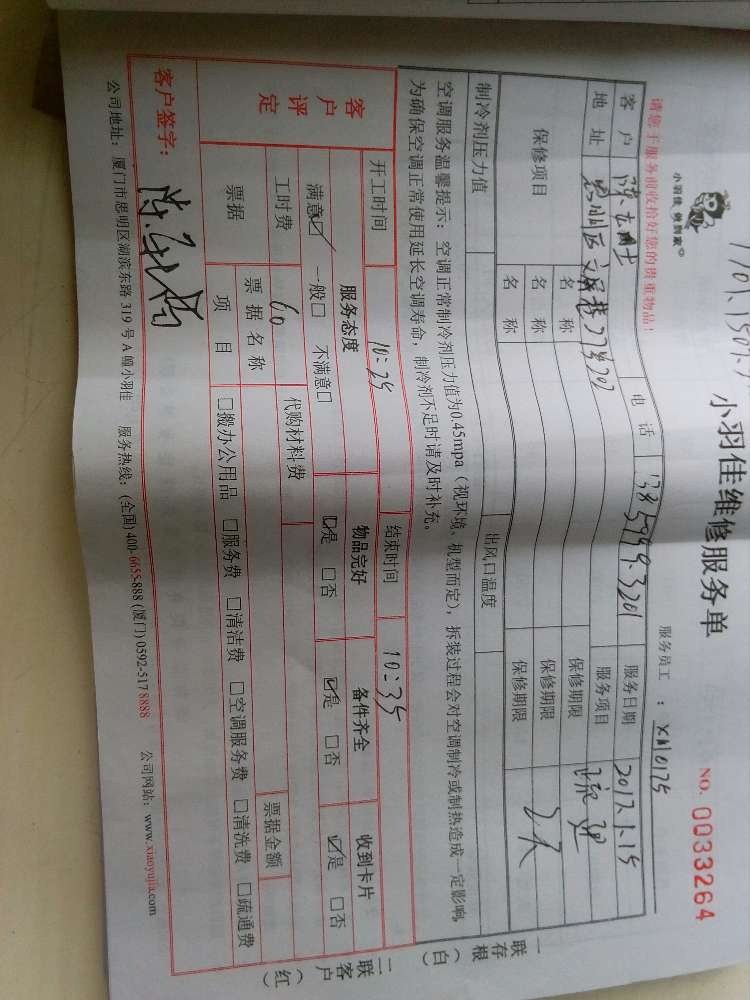 小羽佳 使到家
小羽佳维修服务单
NO. 0033264
请您于服务前收拾好您的贵重物品!
服务员工 : XM0175
客户 电话 服务日期 2017.1.15
地址 服务项目 疏通
保修项目 名称 保修期限
名称 保修期限 2天
名称 保修期限
制冷剂压力值 出风口温度
空调服务温馨提示:空调正常制冷剂压力值为0.45mpa(视环境、机型而定),拆装过程会对空调制冷或制热造成一定影响,
为确保空调正常使用延长空调寿命,制冷剂不足时请及时补充。
开工时间 10:25 结束时间 10:35
客户评定 服务态度 物品完好 备件齐全 收到卡片
满意☑ 一般□ 不满意□ ☑是 □否 ☑是 □否 ☑是 □否
工时费 60 代购材料费
票据 票据名称 票据金额
项目 □搬办公用品 □服务费 □清洁费 □空调服务费 □清洗费 □疏通费
客户签字:
公司地址:厦门市思明区湖滨东路319号A幢小羽佳 服务热线:(全国)400-6655-888 (厦门)0592-517 8888 公司网站:www.xiaoyujia.com
一联存根(白)
二联客户(红)